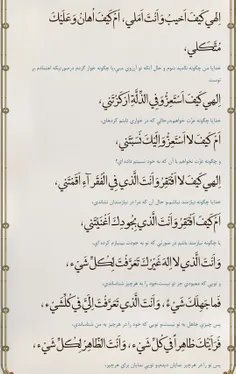 اِلهي كَيْفَ اَخيبُ وَاَنْتَ اَمَلي، اَمْ كَيْفَ اُهانُ وَعَلَيْكَ
مُتَّكَلي،
خدایا من چگونه ناامید شوم و حال آنکه تو آرزوی منی، یا چگونه خوار گردم درصورتیکه اعتمادم بر
توست.
اِلهي كَيْفَ اَسْتَعِزُّ وَفِي الذِّلَّةِ اَرْكَزْتَني،
خدایا چگونه عزّت خواهم درحالی که در خواری ثابتم کرده‌ای.
اَمْ كَيْفَ لا اَسْتَعِزُّ وَاِلَيْكَ نَسَبْتَني،
و چگونه عزّت نخواهم با آن که به خود نسبتم داده ای؟
اِلهي كَيْفَ لا اَفْتَقِرُ وَاَنْتَ الَّذي فِي الْفُقَرآءِ اَقَمْتَني،
خدایا چگونه نیازمند نباشم و حال آن که مرا در نیازمندان نشانده‌ی.
اَمْ كَيْفَ اَفْتَقِرُ وَاَنْتَ الَّذي بِجُودِكَ اَغْنَيْتَني،
یا چگونه نیازمند باشم در صورتی که تو به جودت بی‌نیازم کرده‌ای.
وَاَنْتَ الَّذي لا اِلهَ غَيْرُكَ تَعَرَّفْتَ لِكُلِّ شَيْءٍ،
و تویی که معبودی جز تو نیست، خود را به هرچیز شناساندی.
فَما جَهِلَكَ شَيْءٌ، وَاَنْتَ الَّذي تَعَرَّفْتَ اِلَيَّ في كُلِّ شَيْءٍ،
پس چیزی جاهل به تو نیست، و تویی که خود را در هرچیز به من شناساندی.
فَرَاَيْتُكَ ظاهِراً في كُلِّ شَيْءٍ، وَاَنْتَ الظّاهِرُ لِكُلِّ شَيْءٍ،
پس تو را در هرچیز نمایان دیدم، و تویی نمایان برای هرچیز.